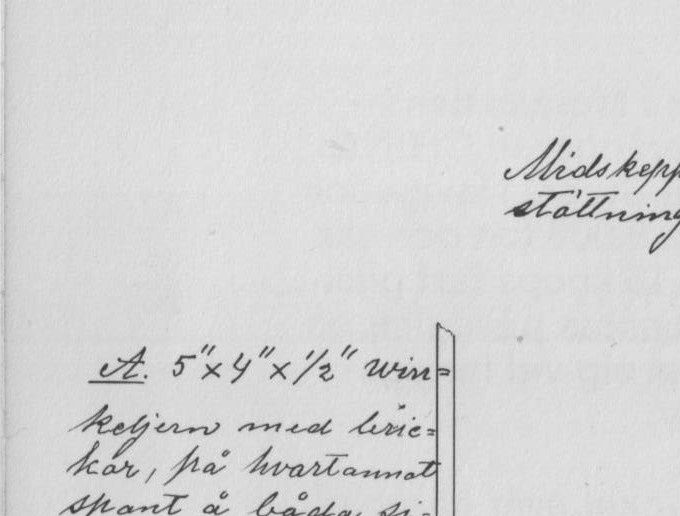 Midskepp
stöttning
A. 5"x4"x1/2" win=
keljern med bric=
kor, på hvartannat
spant å båda si-